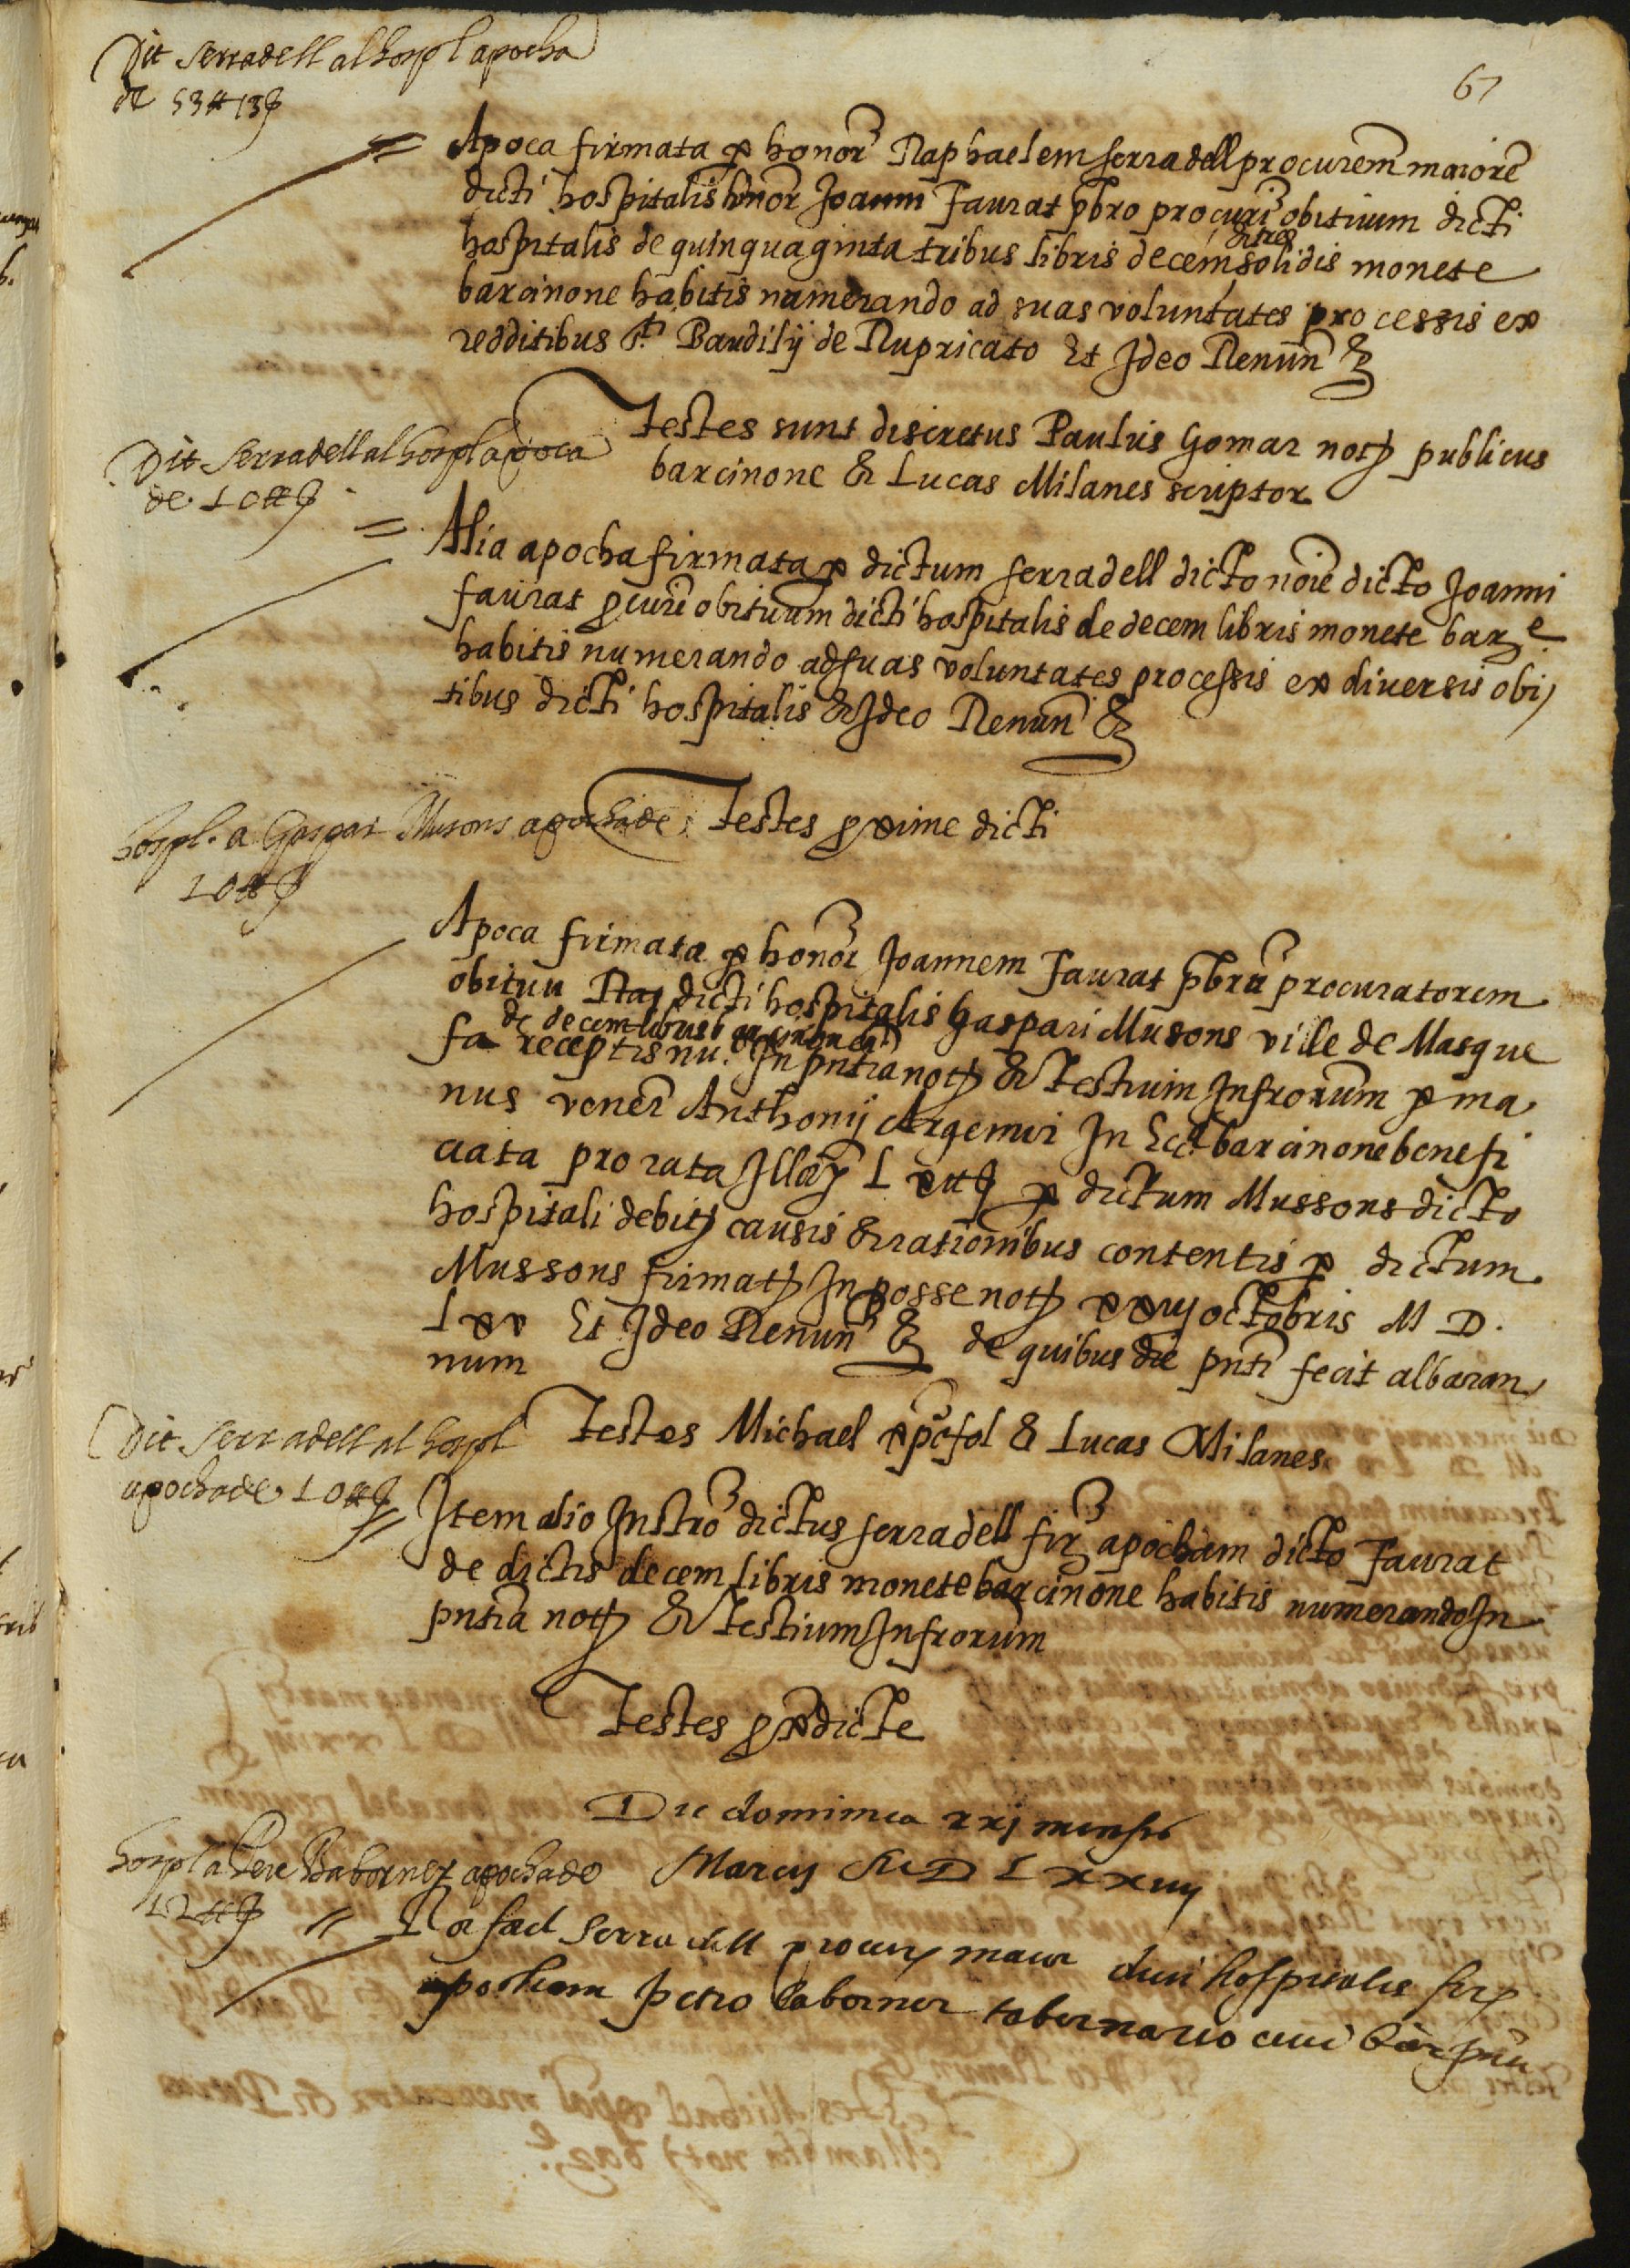 Dit Serradell al hospl apocha
de 53 ₶ 13 ẜ
67
Apoca firmata ꝑ honor Raphaelem serradell procurem maiore
dicti hospitalis honor Joanni Faurat pbro procuri obituum dicti
hospitalis de quinquaginta tribus libris decem & tres solidis monete
barcinone habitis numerando ad suas voluntates processis ex
redditibus sti Baudilij de Rupricato Et Ideo Renun &
Testes sunt discretus Paulus Gomar notꝫ publicus
barcinone & Lucas Milanes scriptor
Dit Serradell al hospl apoca
de 10 ₶ ẜ
Alia apocha firmata ꝑ dictum serradell dicto noie dicto Joanni
faurat ꝓcure obituum dicti hospitalis de decem libris monete bare
habitis numerando ad suas voluntates processis ex diversis obi
tibus dicti hospitalis & Ideo Renun &
hospl. a Gaspar Musons apocha de
10 ₶ ẜ
Testes ꝓxime dicti
Apoca firmata ꝑ honor Joannem Faurat pbru procuratorem
obituu Raj dicti hospitalis Gaspari Musons ville de Masque
de decem libris barcinon
fa receptis nu. In pntia notꝫ & Testium Infrorum ꝑ ma
nus vener Anthonij Argemir In Ecca barcinone benefi
ciata pro rata Illaꝝ L xv ₶ ẜ ꝑ dictum Mussons dicto
hospitali debitꝫ causis & rationibus contentis ꝑ dictum
Mussons firmatꝫ In posse notꝫ xxvij octobris M D.
Lxx Et Ideo Renun & de quibus die pnti fecit albaran
num
Testes Michael xpofol & Lucas Milanes
Dit Serradell al hospl
apocha de 10 ₶ ẜ
Item alio Instro dictus serradell fir apocham dicto Faurat
de dictis decem libris monete barcinone habitis numerando In
pntia notꝫ & Testium Infrorum
Testes ꝓxe dicte
Die dominica xxj mensis
Marcij M D L xxiiij
hospl a Pere Taborner apocha de
12 ₶ ẜ
Rafael Serradell procurꝫ maior dicti hospitalis firꝫ
apocham Petro Taborner tabernario civi